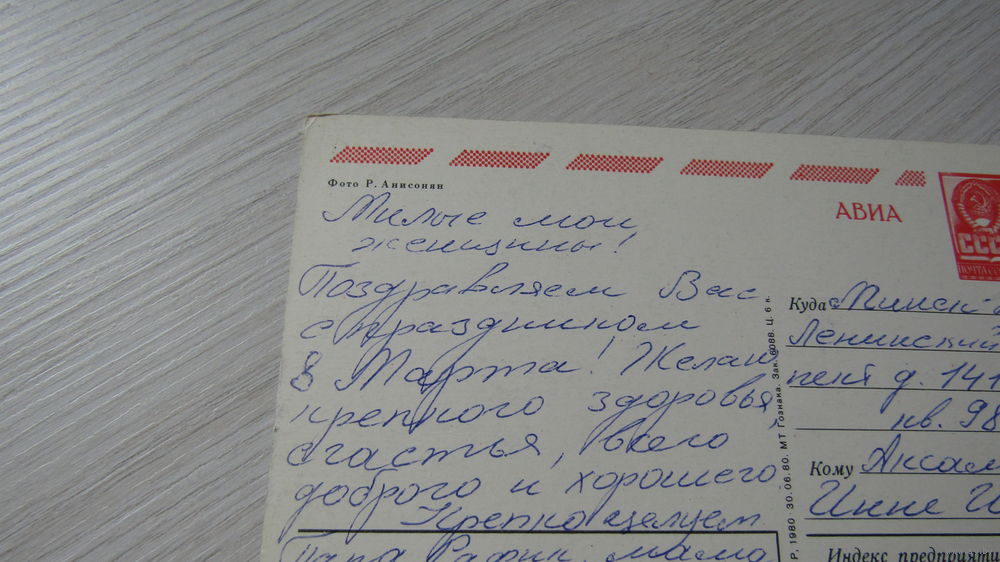 Фото Р. Анисонян
АВИА
СССР
Милые мои
женщины!
Поздравляем Вас
с праздником
8 Марта! Желаю
крепкого здоровья,
счастья, всего
доброго и хорошего
Крепко целуем
Папа Рафик, мама
Р, 1980 30.06.80. МТ Гознака. Зак. 6088. Ц. 6 к.
Куда г. Минск
Ленинский
пект д. 141
кв. 98
Кому Аксам
Инне И
Индекс предприяти